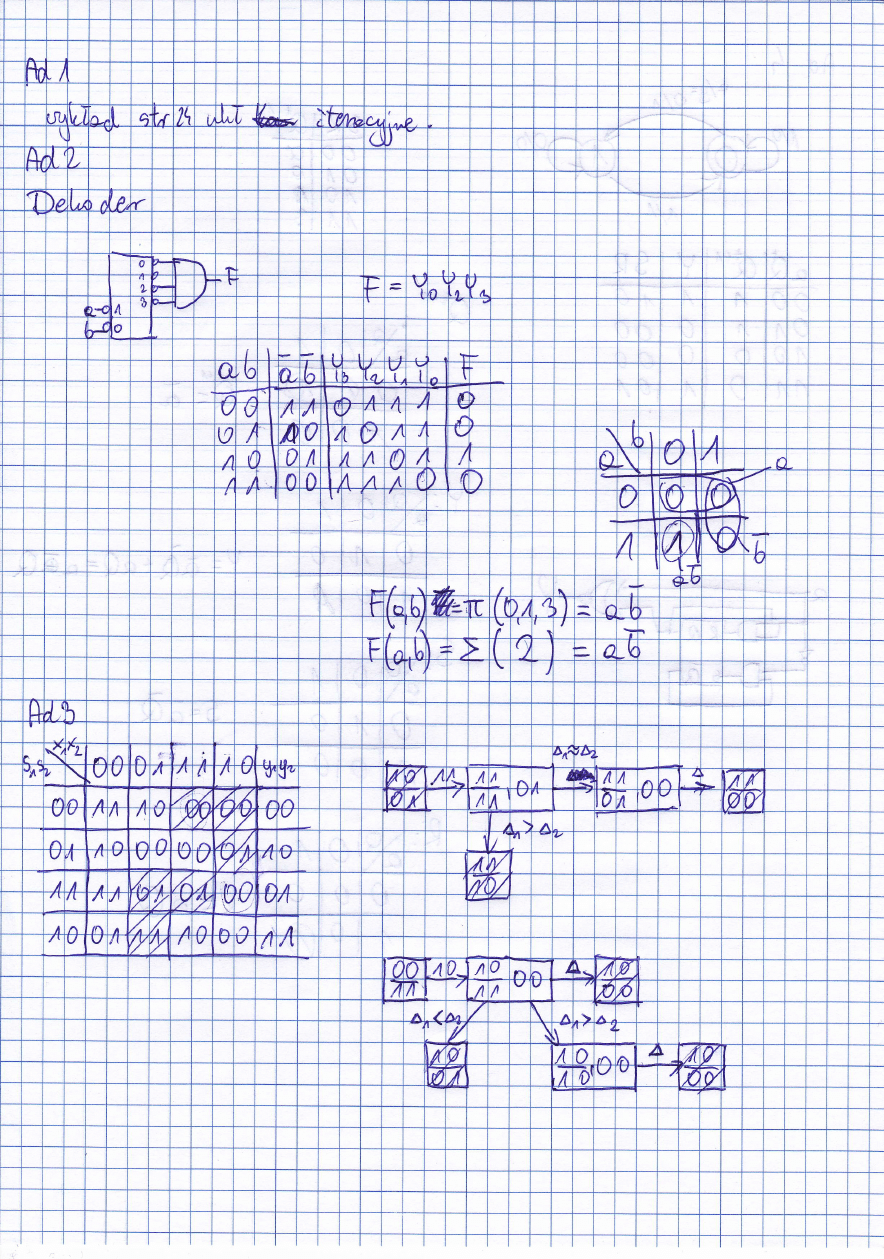 Ad 1
wykład str 24 ukł iteracyjne.
Ad 2
Dekoder
0
1
2
3
a 1
b 0
F
F = Y0Y2Y3
a b | a̅ b̅ | Y3 Y2 Y1 Y0 | F
0 0 | 1 1 | 0 1 1 1 | 0
0 1 | 1 0 | 1 0 1 1 | 0
1 0 | 0 1 | 1 1 0 1 | 1
1 1 | 0 0 | 1 1 1 0 | 0
a\b | 0 | 1
a
0 | 0 | 0
1 | 1 | 0
b̅
ab̅
F(a,b) = π (0,1,3) = ab̅
F(a,b) = Σ ( 2 ) = ab̅
Ad 3
S1S2\X1X2 | 00 | 01 | 11 | 10 | y1y2
00 | 11 | 10 | 00 | 00 | 00
01 | 10 | 00 | 00 | 01 | 10
11 | 11 | 01 | 01 | 00 | 01
10 | 01 | 11 | 10 | 00 | 11
Δ1≈Δ2
10/01 11 11/11,01 11/01 00 Δ 11/00
Δ1>Δ2
11/10
00/11 10 10/11 00 Δ 10/00
Δ1<Δ2 Δ1>Δ2
10/01 10/10,00 Δ 10/00